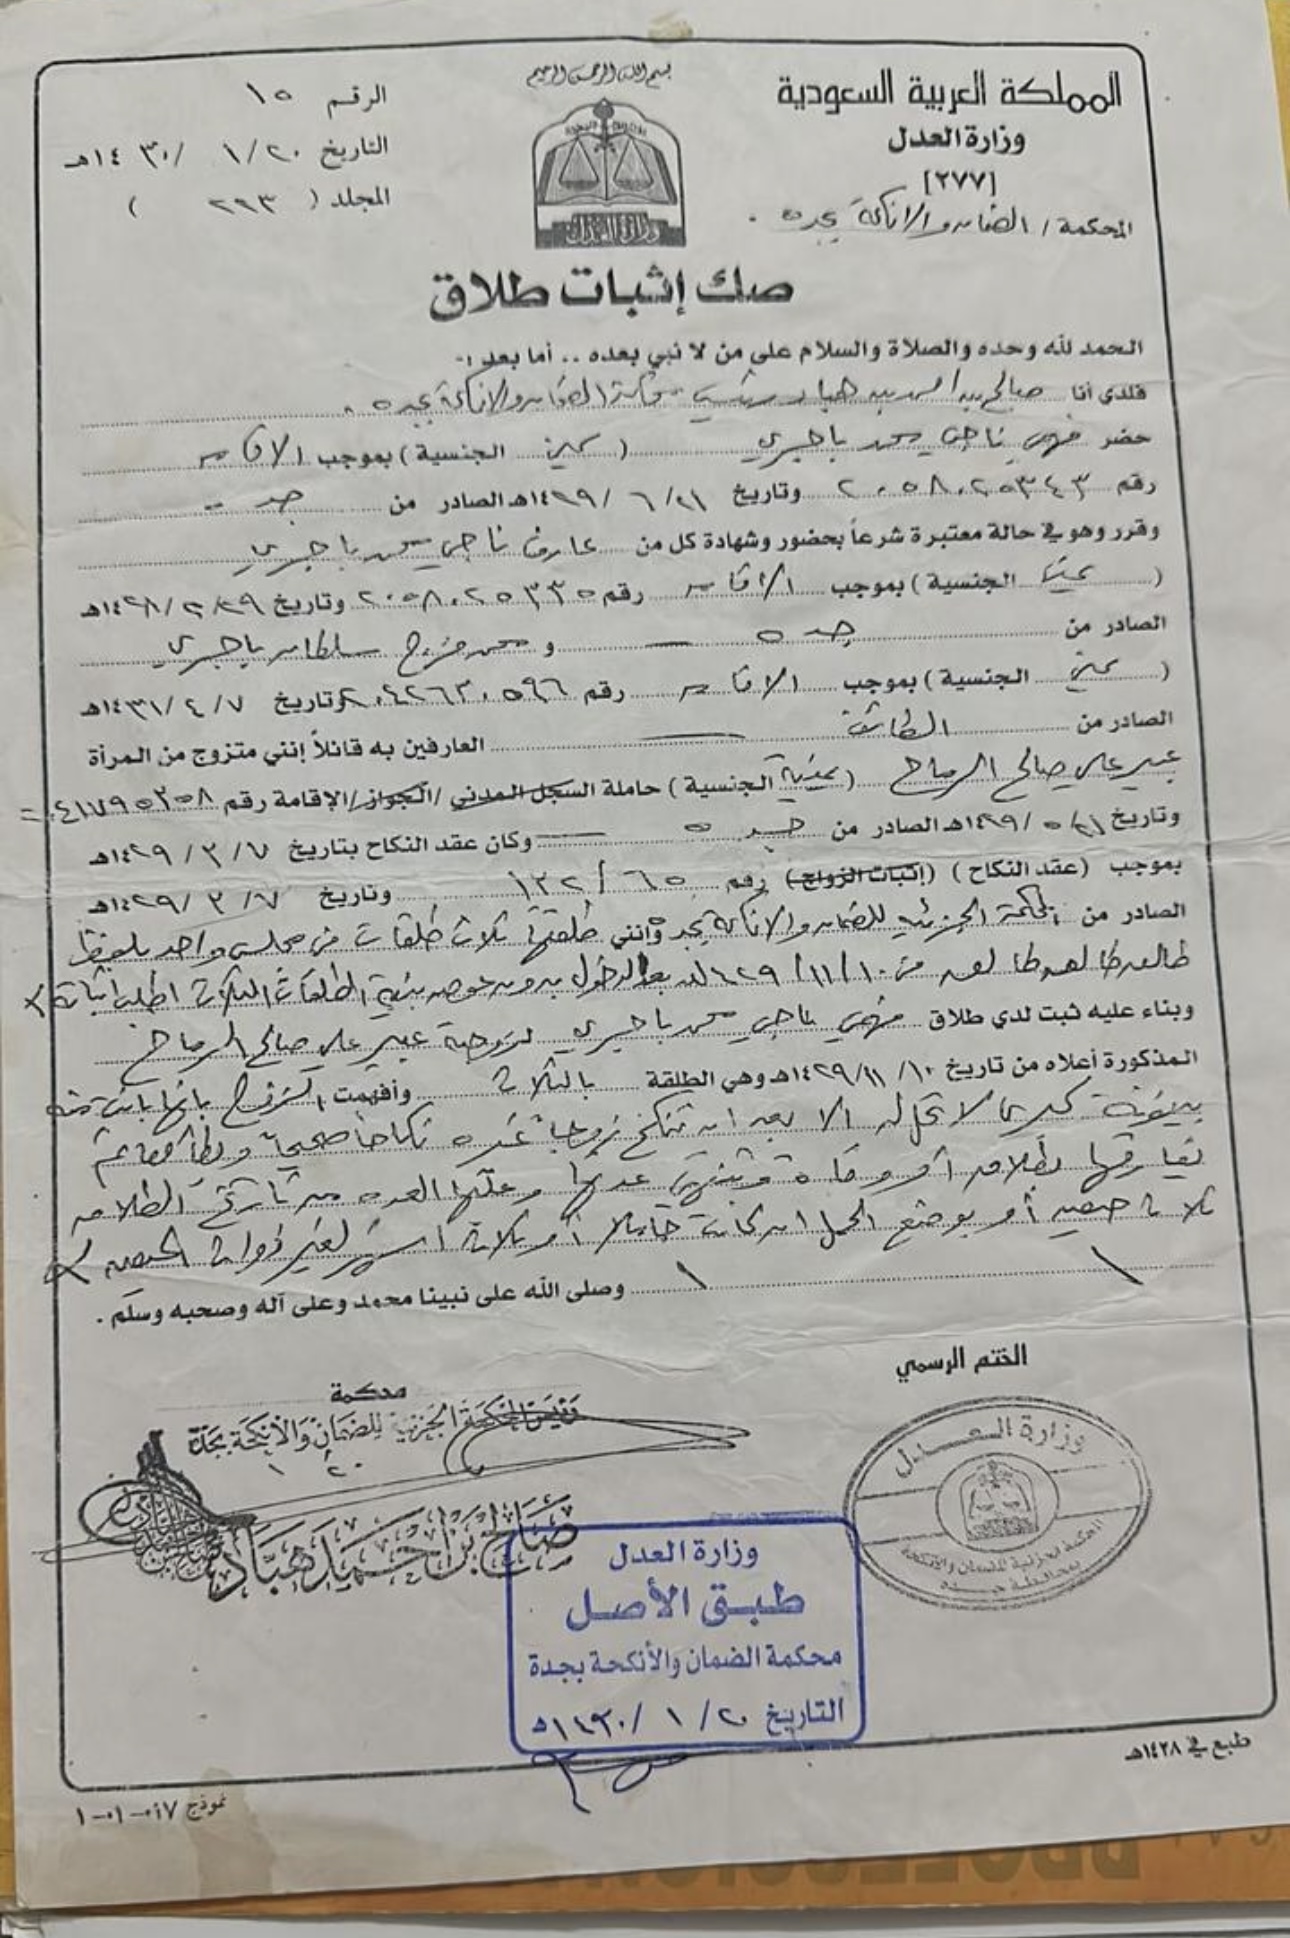 بسم الله الرحمن الرحيم
المملكة العربية السعودية
وزارة العدل
[٢٧٧]
المحكمة / الضمان والأنكحة بجدة
الرقم ١٥
التاريخ ١/٢٠ / ١٤٣٠هـ
المجلد ( ٢٩٣ )
وزارة العدل
صك إثبات طلاق
الحمد لله وحده والصلاة والسلام على من لا نبي بعده .. أما بعد :-
فلدي أنا صالح بن احميد هباد رئيس محكمة الضمان والأنكحة بجده
حضر فهمي ناجي محمد باجبري ( يمني الجنسية ) بموجب الاقامه
رقم ٢٠٥٨٠٢٥٣٤٣ وتاريخ ٦/٢١ /١٤٢٩هـ الصادر من جده
وقرر وهو في حالة معتبرة شرعاً بحضور وشهادة كل من عارف ناجي محمد باجبري
( يمني الجنسية ) بموجب الاقامه رقم ٢٠٥٨٠٢٥٣٣٥ وتاريخ /١٤٢٨هـ
الصادر من جده و محمد فرج سلطان باجبري
( يمني الجنسية ) بموجب الاقامه رقم وتاريخ ٤/٧/ ١٤٣١هـ
الصادر من الطائف العارفين به قائلاً إنني متزوج من المرأة
عبير علي صالح الرماح ( يمنية الجنسية ) حاملة السجل المدني /الجواز/الإقامة رقم
وتاريخ ٥/٢١ /١٤٢٩هـ الصادر من جده وكان عقد النكاح بتاريخ ٣/٧ /١٤٢٩هـ
بموجب (عقد النكاح ) (إثبات الزواج) رقم ٦٥ /١٣٢ وتاريخ ٣/٧ /١٤٢٩هـ
الصادر من المحكمة الجزئية للضمان والأنكحة بجده وأنني طلقتها ثلاث طلقات في مجلس واحد بلفظ
طالق طالق طالق من ١١/١٠/ ١٤٢٩هـ بعد الدخول بدون عوض بنية الطلقات الثلاث اطلب اثباته
وبناء عليه ثبت لدي طلاق فهمي ناجي محمد باجبري لزوجته عبير علي صالح الرماح
المذكورة أعلاه من تاريخ ١١/١٠ /١٤٢٩هـ وهي الطلقة بالثلاث وأفهمت الزوج بانها بائن منه
بينونة كبرى لا تحل له الا بعد ان تنكح زوجا غيره نكاحا صحيحا ويطأها ثم
يفارقها بطلاق أو وفاة وتنتهي عدتها وعليها العده من تاريخ الطلاق
ثلاث حيض أو بوضع الحمل ان كانت حاملا أو ثلاثة اشهر لغير ذوات الحيض
وصلى الله على نبينا محمد وعلى آله وصحبه وسلم .
الختم الرسمي
محكمة
رئيس المحكمة الجزئية للضمان والأنكحة بجدة
صالح بن احميد هباد
وزارة العدل
المحكمة الجزئية للضمان والأنكحة
بمحافظة جده
وزارة العدل
طبق الأصل
محكمة الضمان والأنكحة بجدة
التاريخ ٢٠/ ١ /١٤٣٠هـ
طبع في ١٤٢٨هـ
نموذج ١٧-٠١-٠١